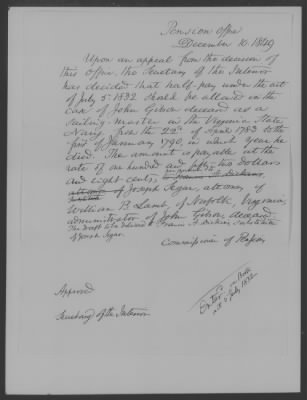 Pension office
December 10. 1849
Upon an appeal from the decision of
this office the Secretary of the Interior
has decided that half-pay under the act
of July 5. 1832 should be allowed in the
case of John Gibson deceased as a
Sailing-master in the Virginia State
Navy from the 22d of April 1783 to the
first of January 1790, in which year he
died. The amount is payable at the
rate of one hundred and fifty two dollars
and eight cents,
attorney of Joseph Segar, attorney of
William B. Lamb, of Norfolk, Virginia,
administrator of John Gibson deceased
The draft to be delivered to Francis A. Dickins, Substitute
of Joseph Segar.
Commissioner of Pensions
Approved
Secretary of the Interior
on Book
act 5 July 1832